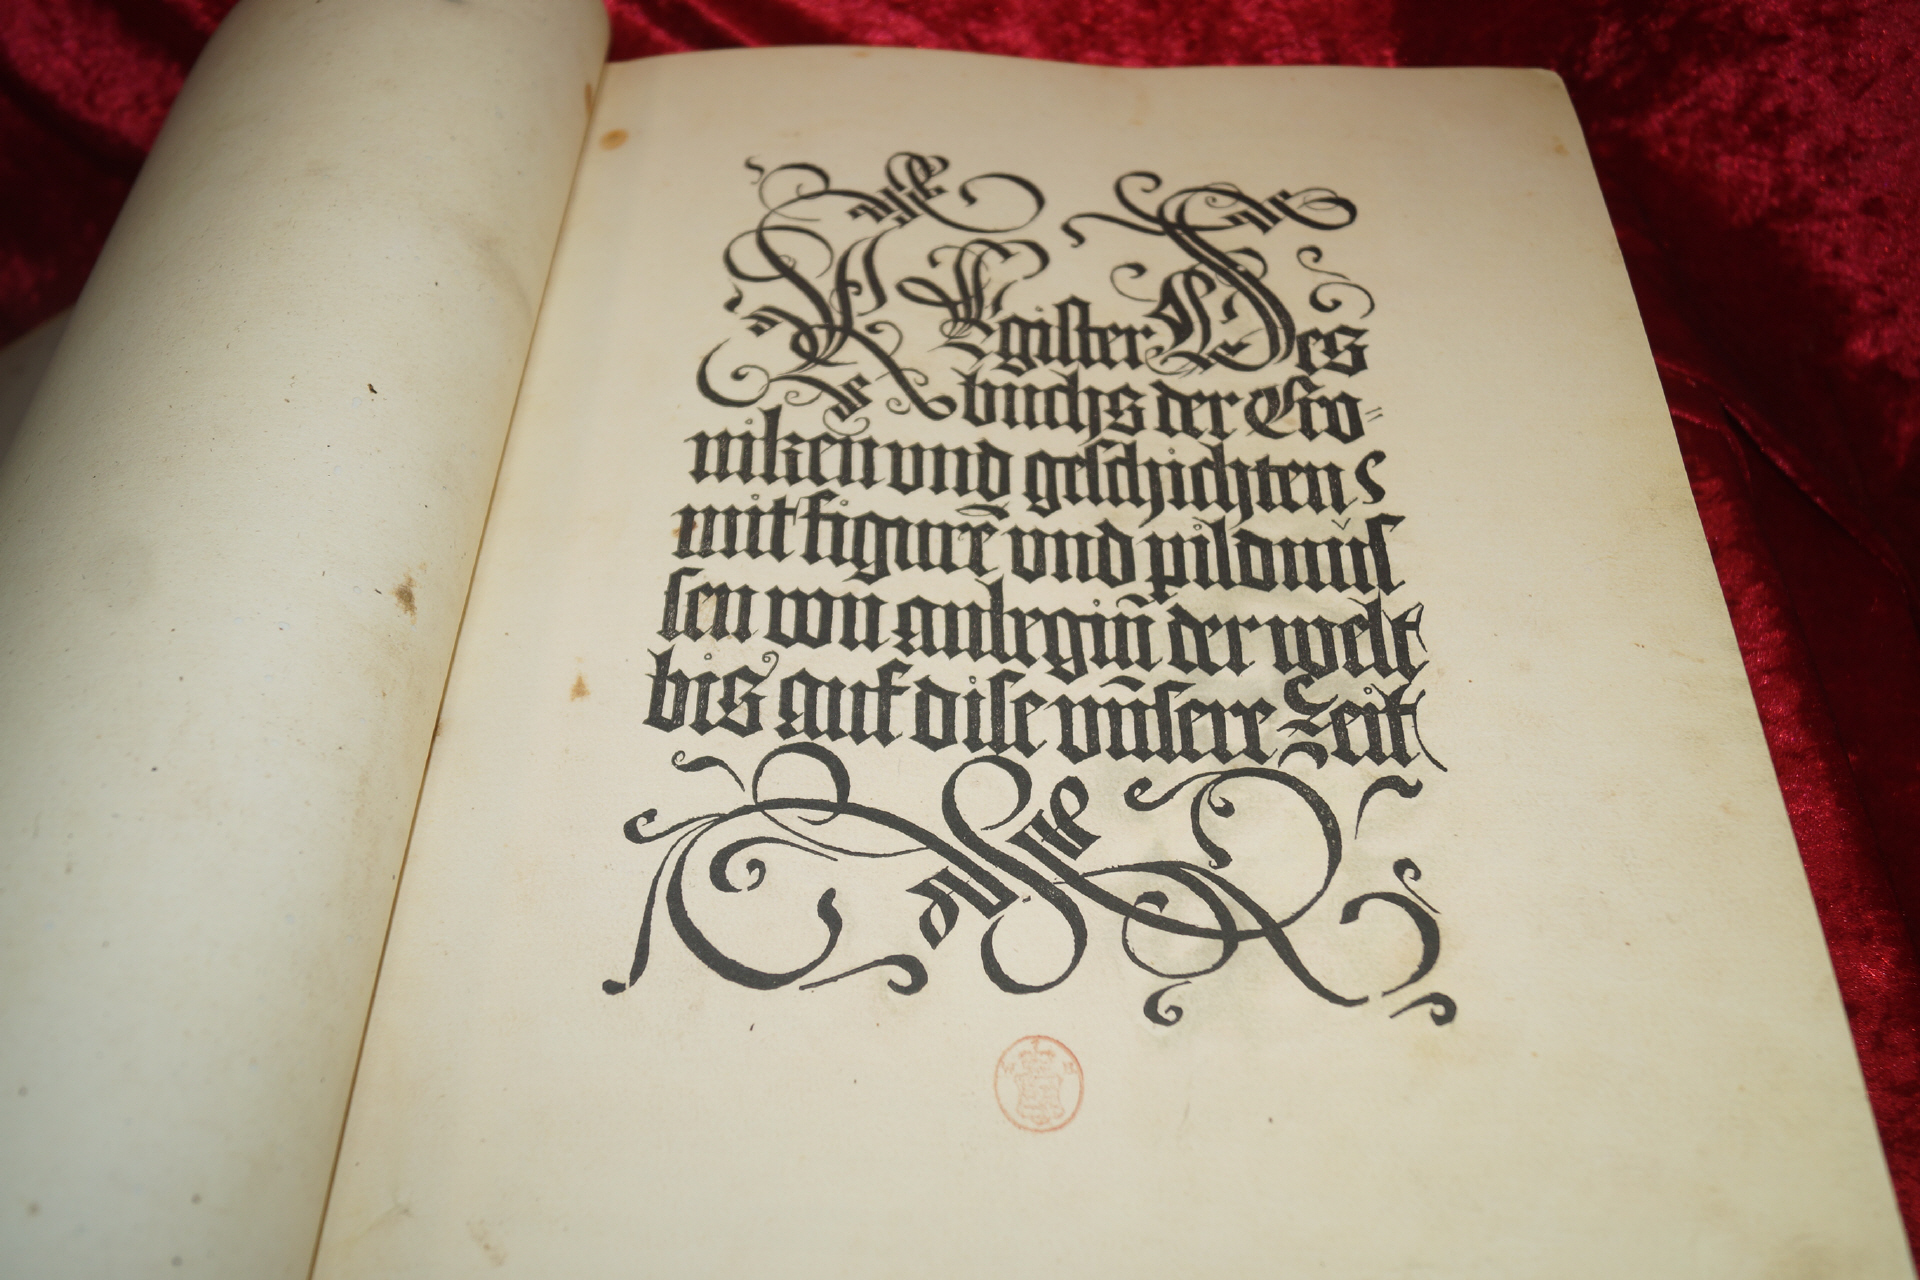 REgister Des
buchs der Cro-
niken vnd geschichten
mit figurē vnd pildnüs
sen von anbegiñ der welt
bis auf dise vñsere Zeit